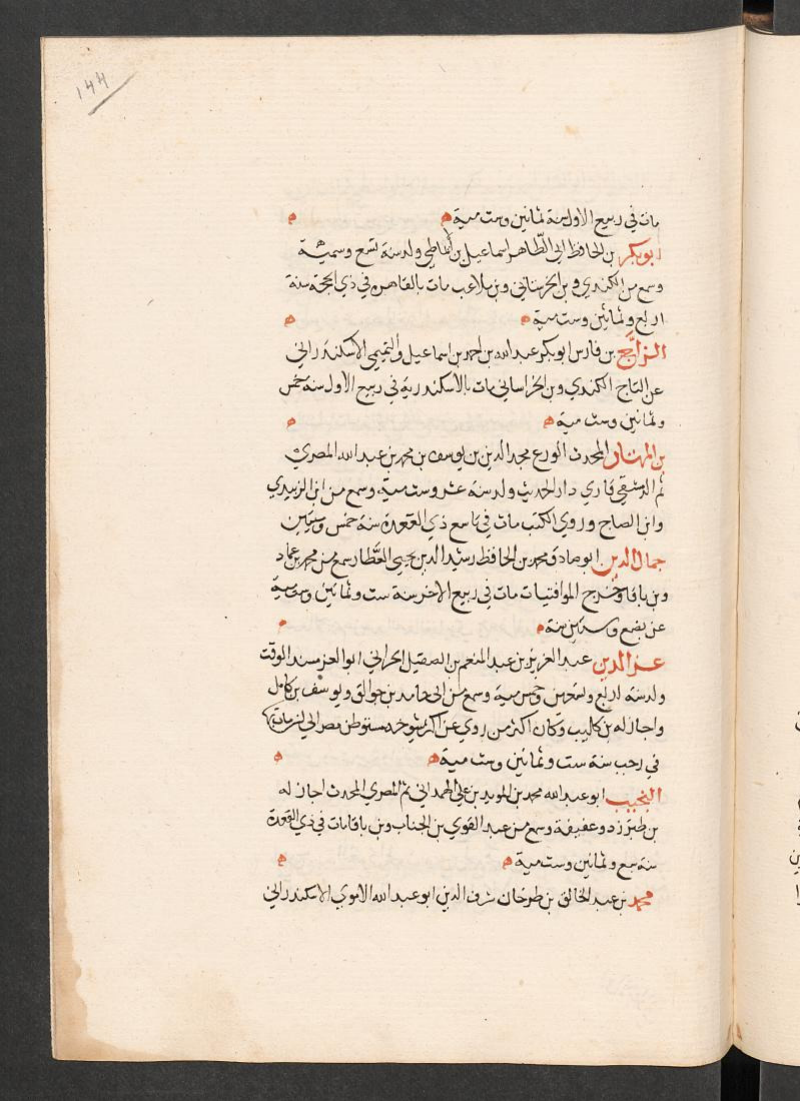 ١٤٤
مات في ربيع الاول سنة ثمانين وست مية
ابو بكر بن الحافظ ابي الطاهر اسماعيل بن الانماطي ولد سنة تسع وستمية
وسمع من الكندي وبن الحرستاني وبن ملاعب مات بالقاهرة في ذي الحجة سنة
اربع وثمانين وست مية
بن فارس ابو بكر عبد الله بن احمد بن اسماعيل التميمي الاسكندراني
عن التاج الكندي وبن الخراساني مات بالاسكندرية في ربيع الاول سنة خمس
وثمانين وست مية
بن المهتار المحدث الورع مجد الدين بن يوسف بن محمد بن عبد الله المصري
ثم الدمشقي قاري دار الحديث ولد سنة عشر وست مية وسمع من ابن الزبيدي
وابن الصلاح وروي الكتب مات في تاسع ذي القعدة سنة خمس وستين
جمال الدين ابو صادق محمد بن الحافظ رشيد الدين يحيي العطار سمع من محمد بن عماد
وبن باقا وخرج الموافقيات مات في ربيع الاخر سنة ست وثمانين وست مية
عن بضع وستين سنة
عز الدين عبد العزيز بن عبد المنعم بن الصقيل الحراني ابو العز مسند الوقت
ولد سنة اربع وتسعين وخمس مية وسمع من ابي حامد بن جوالق ويوسف بن كامل
واجاز له بن كليب وكان اكثر من روي عن اكثر شيوخه مستوطن مصر الي ان مات
في رجب سنة ست وثمانين وست مية
النجيب ابو عبد الله محمد بن المويد بن علي الهمداني ثم المصري المحدث اجاز له
بن طبرزد وعفيفة وسمع من عبد القوي بن الجناب وبن باقا مات في ذي القعدة
سنة سبع وثمانين وست مية
محمد بن عبد الخالق بن طرخان شرف الدين ابو عبد الله الاموي الاسكندراني